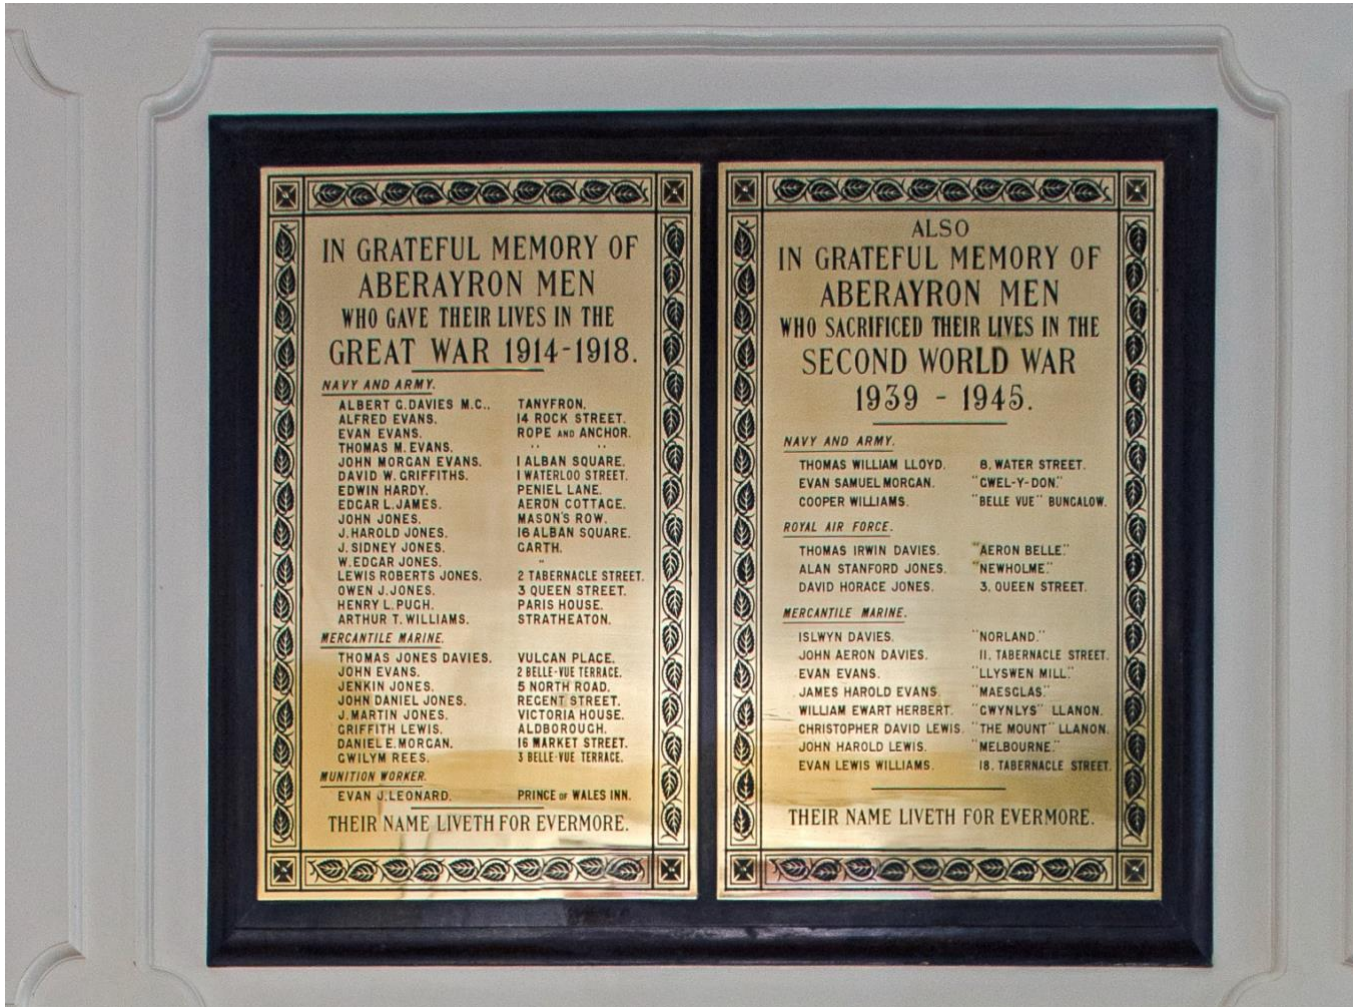 IN GRATEFUL MEMORY OF
ABERAYRON MEN
WHO GAVE THEIR LIVES IN THE
GREAT WAR 1914-1918.
NAVY AND ARMY.
ALBERT G. DAVIES M.C., TANYFRON.
ALFRED EVANS. 14 ROCK STREET.
EVAN EVANS. ROPE AND ANCHOR.
THOMAS M. EVANS. " "
JOHN MORGAN EVANS. 1 ALBAN SQUARE.
DAVID W. GRIFFITHS. 1 WATERLOO STREET.
EDWIN HARDY. PENIEL LANE.
EDGAR L. JAMES. AERON COTTAGE.
JOHN JONES. MASON'S ROW.
J. HAROLD JONES. 16 ALBAN SQUARE.
J. SIDNEY JONES. GARTH.
W. EDGAR JONES. "
LEWIS ROBERTS JONES. 2 TABERNACLE STREET.
OWEN J. JONES. 3 QUEEN STREET.
HENRY L. PUGH. PARIS HOUSE.
ARTHUR T. WILLIAMS. STRATHEATON.
MERCANTILE MARINE.
THOMAS JONES DAVIES. VULCAN PLACE.
JOHN EVANS. 2 BELLE-VUE TERRACE.
JENKIN JONES. 5 NORTH ROAD.
JOHN DANIEL JONES. REGENT STREET.
J. MARTIN JONES. VICTORIA HOUSE.
GRIFFITH LEWIS. ALDBOROUGH.
DANIEL E. MORGAN. 16 MARKET STREET.
GWILYM REES. 3 BELLE-VUE TERRACE.
MUNITION WORKER.
EVAN J. LEONARD. PRINCE OF WALES INN.
THEIR NAME LIVETH FOR EVERMORE.
ALSO
IN GRATEFUL MEMORY OF
ABERAYRON MEN
WHO SACRIFICED THEIR LIVES IN THE
SECOND WORLD WAR
1939 - 1945.
NAVY AND ARMY.
THOMAS WILLIAM LLOYD. 8, WATER STREET.
EVAN SAMUEL MORGAN. "GWEL-Y-DON."
COOPER WILLIAMS. "BELLE VUE" BUNGALOW.
ROYAL AIR FORCE.
THOMAS IRWIN DAVIES. "AERON BELLE."
ALAN STANFORD JONES. "NEWHOLME."
DAVID HORACE JONES. 3, QUEEN STREET.
MERCANTILE MARINE.
ISLWYN DAVIES. "NORLAND."
JOHN AERON DAVIES. 11, TABERNACLE STREET.
EVAN EVANS. "LLYSWEN MILL."
JAMES HAROLD EVANS. "MAESGLAS."
WILLIAM EWART HERBERT. "GWYNLYS" LLANON.
CHRISTOPHER DAVID LEWIS. "THE MOUNT" LLANON.
JOHN HAROLD LEWIS. "MELBOURNE."
EVAN LEWIS WILLIAMS. 18, TABERNACLE STREET.
THEIR NAME LIVETH FOR EVERMORE.